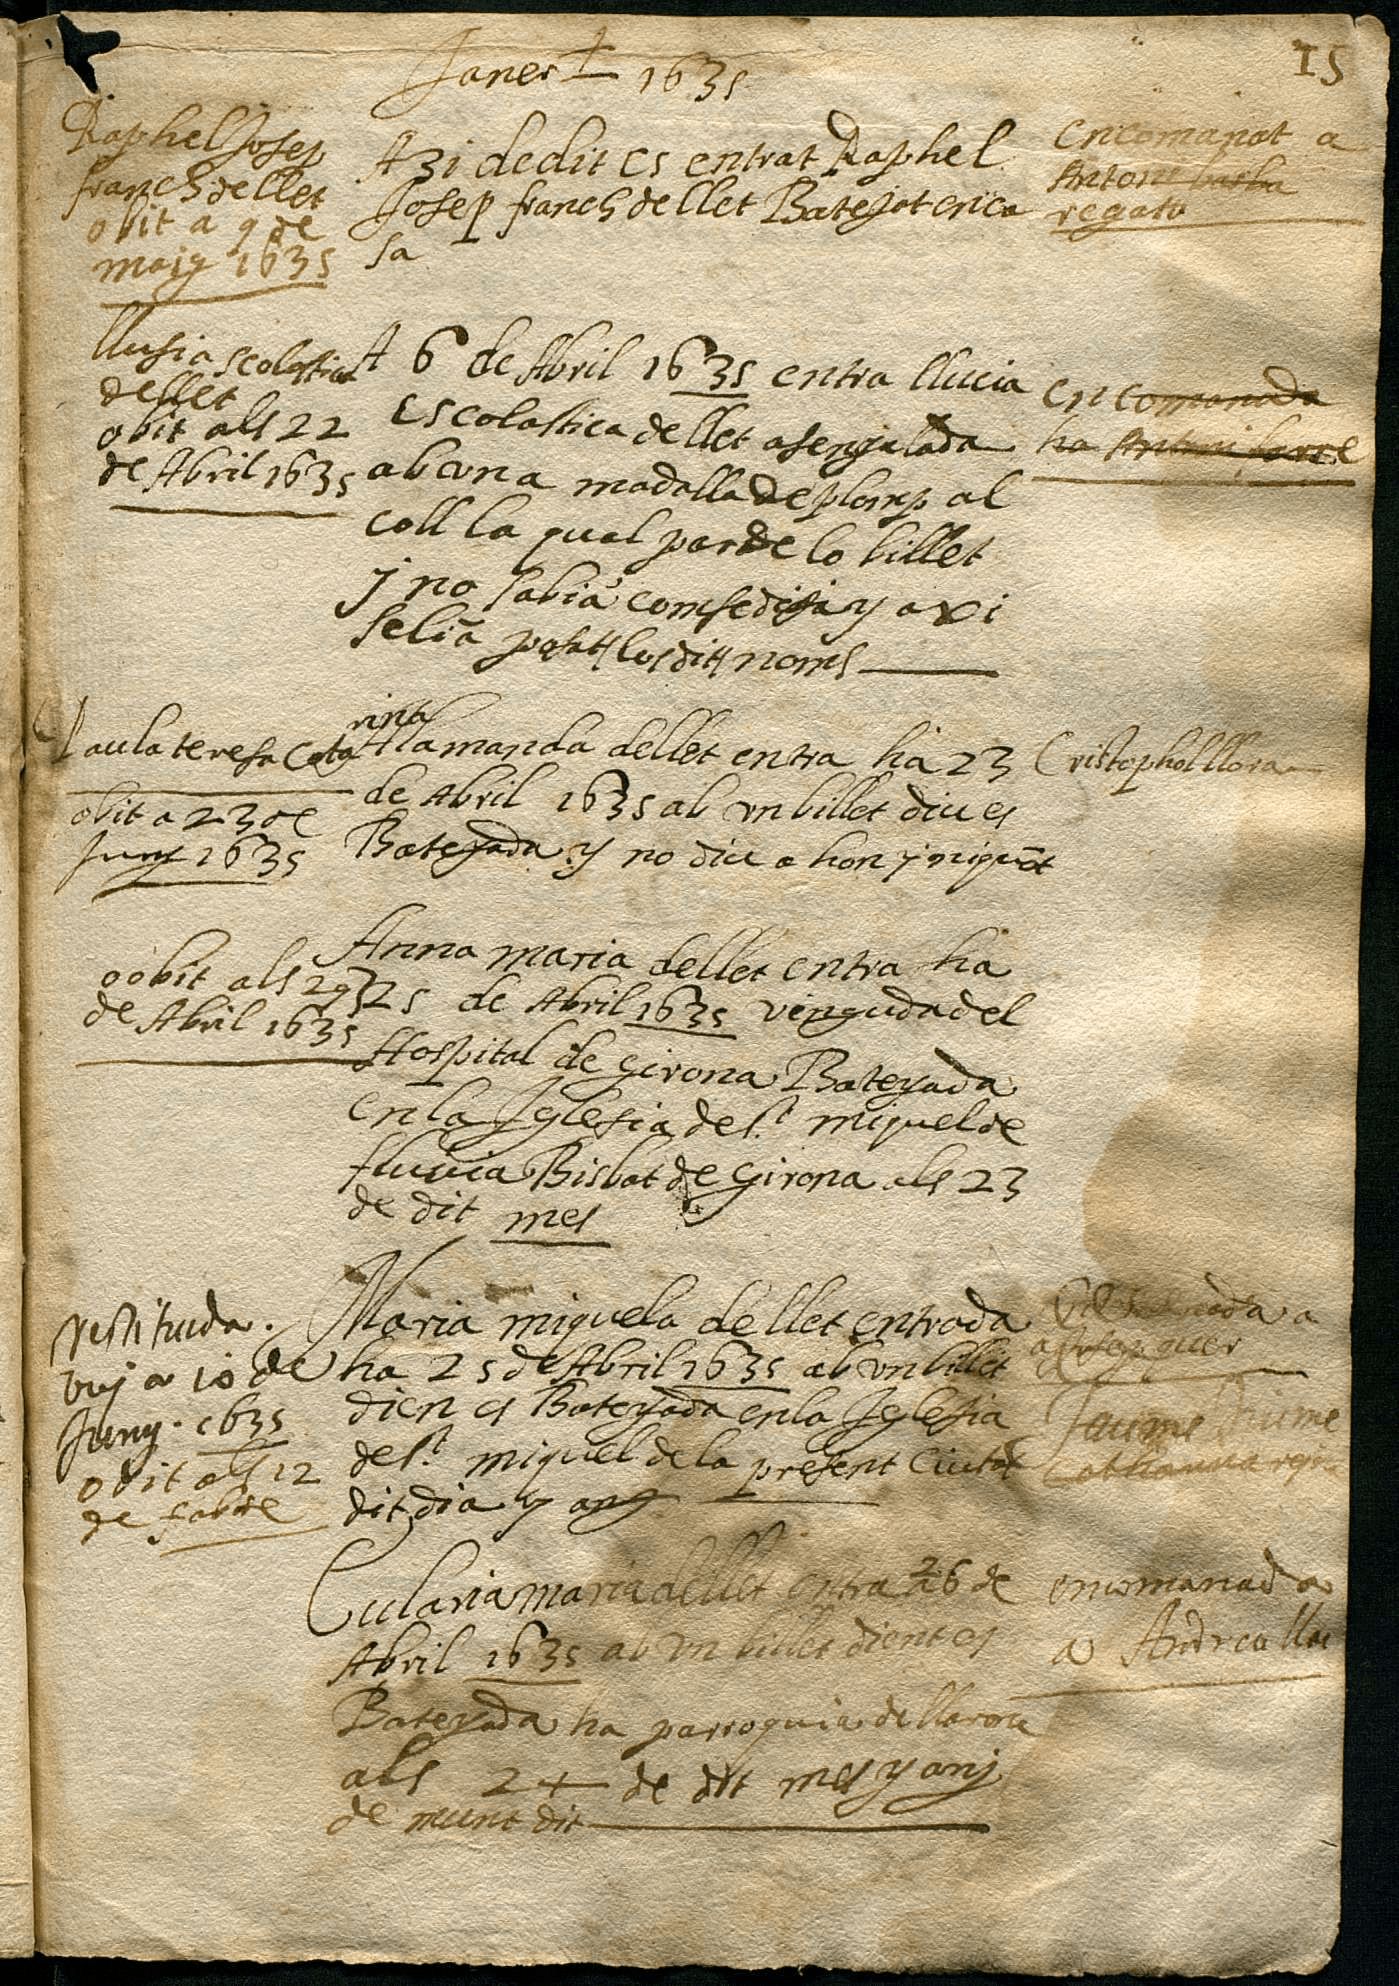 15
Janer 1635
Raphel Josep
franch de llet
obit a 9 de
maig 1635
A 31 de dit es entrat Raphel
Josep franch de llet Batejat en ca
sa
encomanat a
Antoni barba
regato
llusia scolastica
de llet
obit als 22
de Abril 1635
A 6 de Abril 1635 entra llucia
Escolastica de llet asenyalada
ab una madalla de plomp al
coll la qual parde lo billet
y no sabia com se disia y axi
seli a posats los dits noms
encomanada
ha Antoni
Paula teresa Cata
rina
obit a 23 de
Juny 1635
Alamanda de llet entra ha 23
de Abril 1635 ab un billet diu es
Bateyada y no diu a hon y ni quāt
Cristophol llora
obit als 29
de Abril 1635
Anna maria de llet entra ha
25 de Abril 1635 vinguda del
Hospital de Girona Bateyada
en la Iglesia de St miquel de
fluvia Bisbat de Girona als 23
de dit mes
restituida
vuy a 10 de
Juny 1635
obit als 12
de
Maria miquela de llet entrada
ha 25 de Abril 1635 ab un billet
dien es Bateyada en la Iglesia
de St miquel de la present Ciutat
dit dia y any
a Josep
Jaume
Eularia maria de llet entra a 26 de
Abril 1635 ab un billet dient es
Bateyada ha parroquia de
als 24 de dit mes y any
de munt dit
encomanada
a Andreu